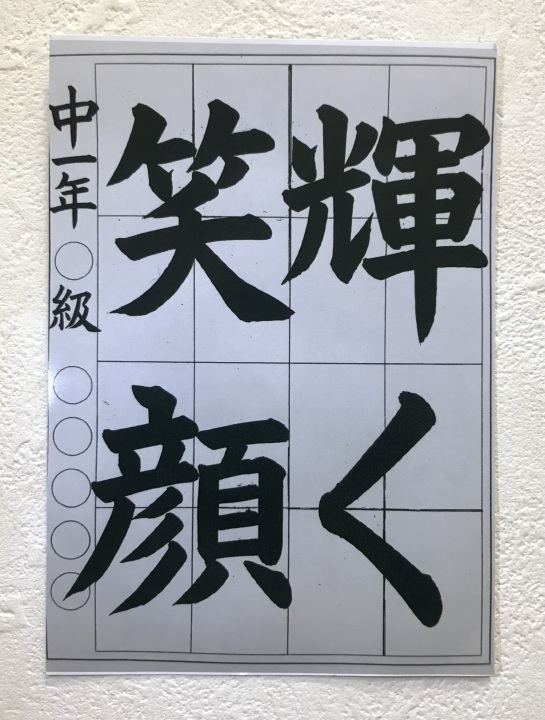 輝く
笑顔
中一年○級○○○○○